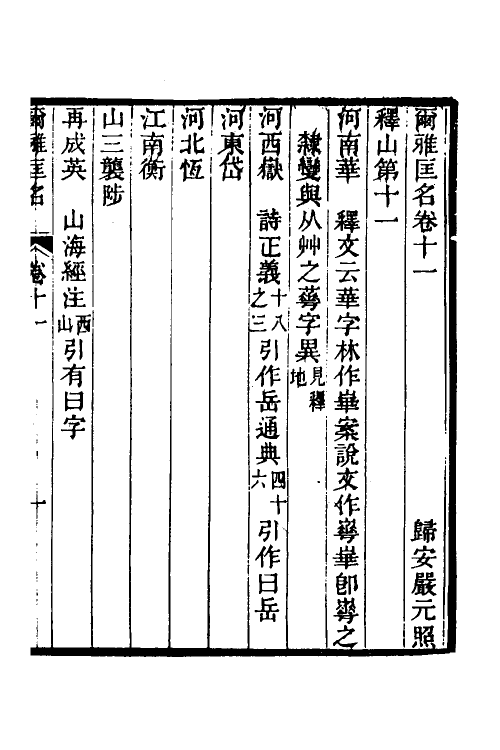 爾雅匡名卷十一　歸安嚴元照
釋山第十一
河南華　釋文云華字林作崋案說文作𡶸崋卽𡶸之
隸變與从艸之蕚字異見釋地
河西嶽　詩正義十八之三引作岳通典四十六引作曰岳
河東岱
河北恆
江南衡
山三襲陟
再成英　山海經注西山引有曰字
爾雅匡名　卷十一　一